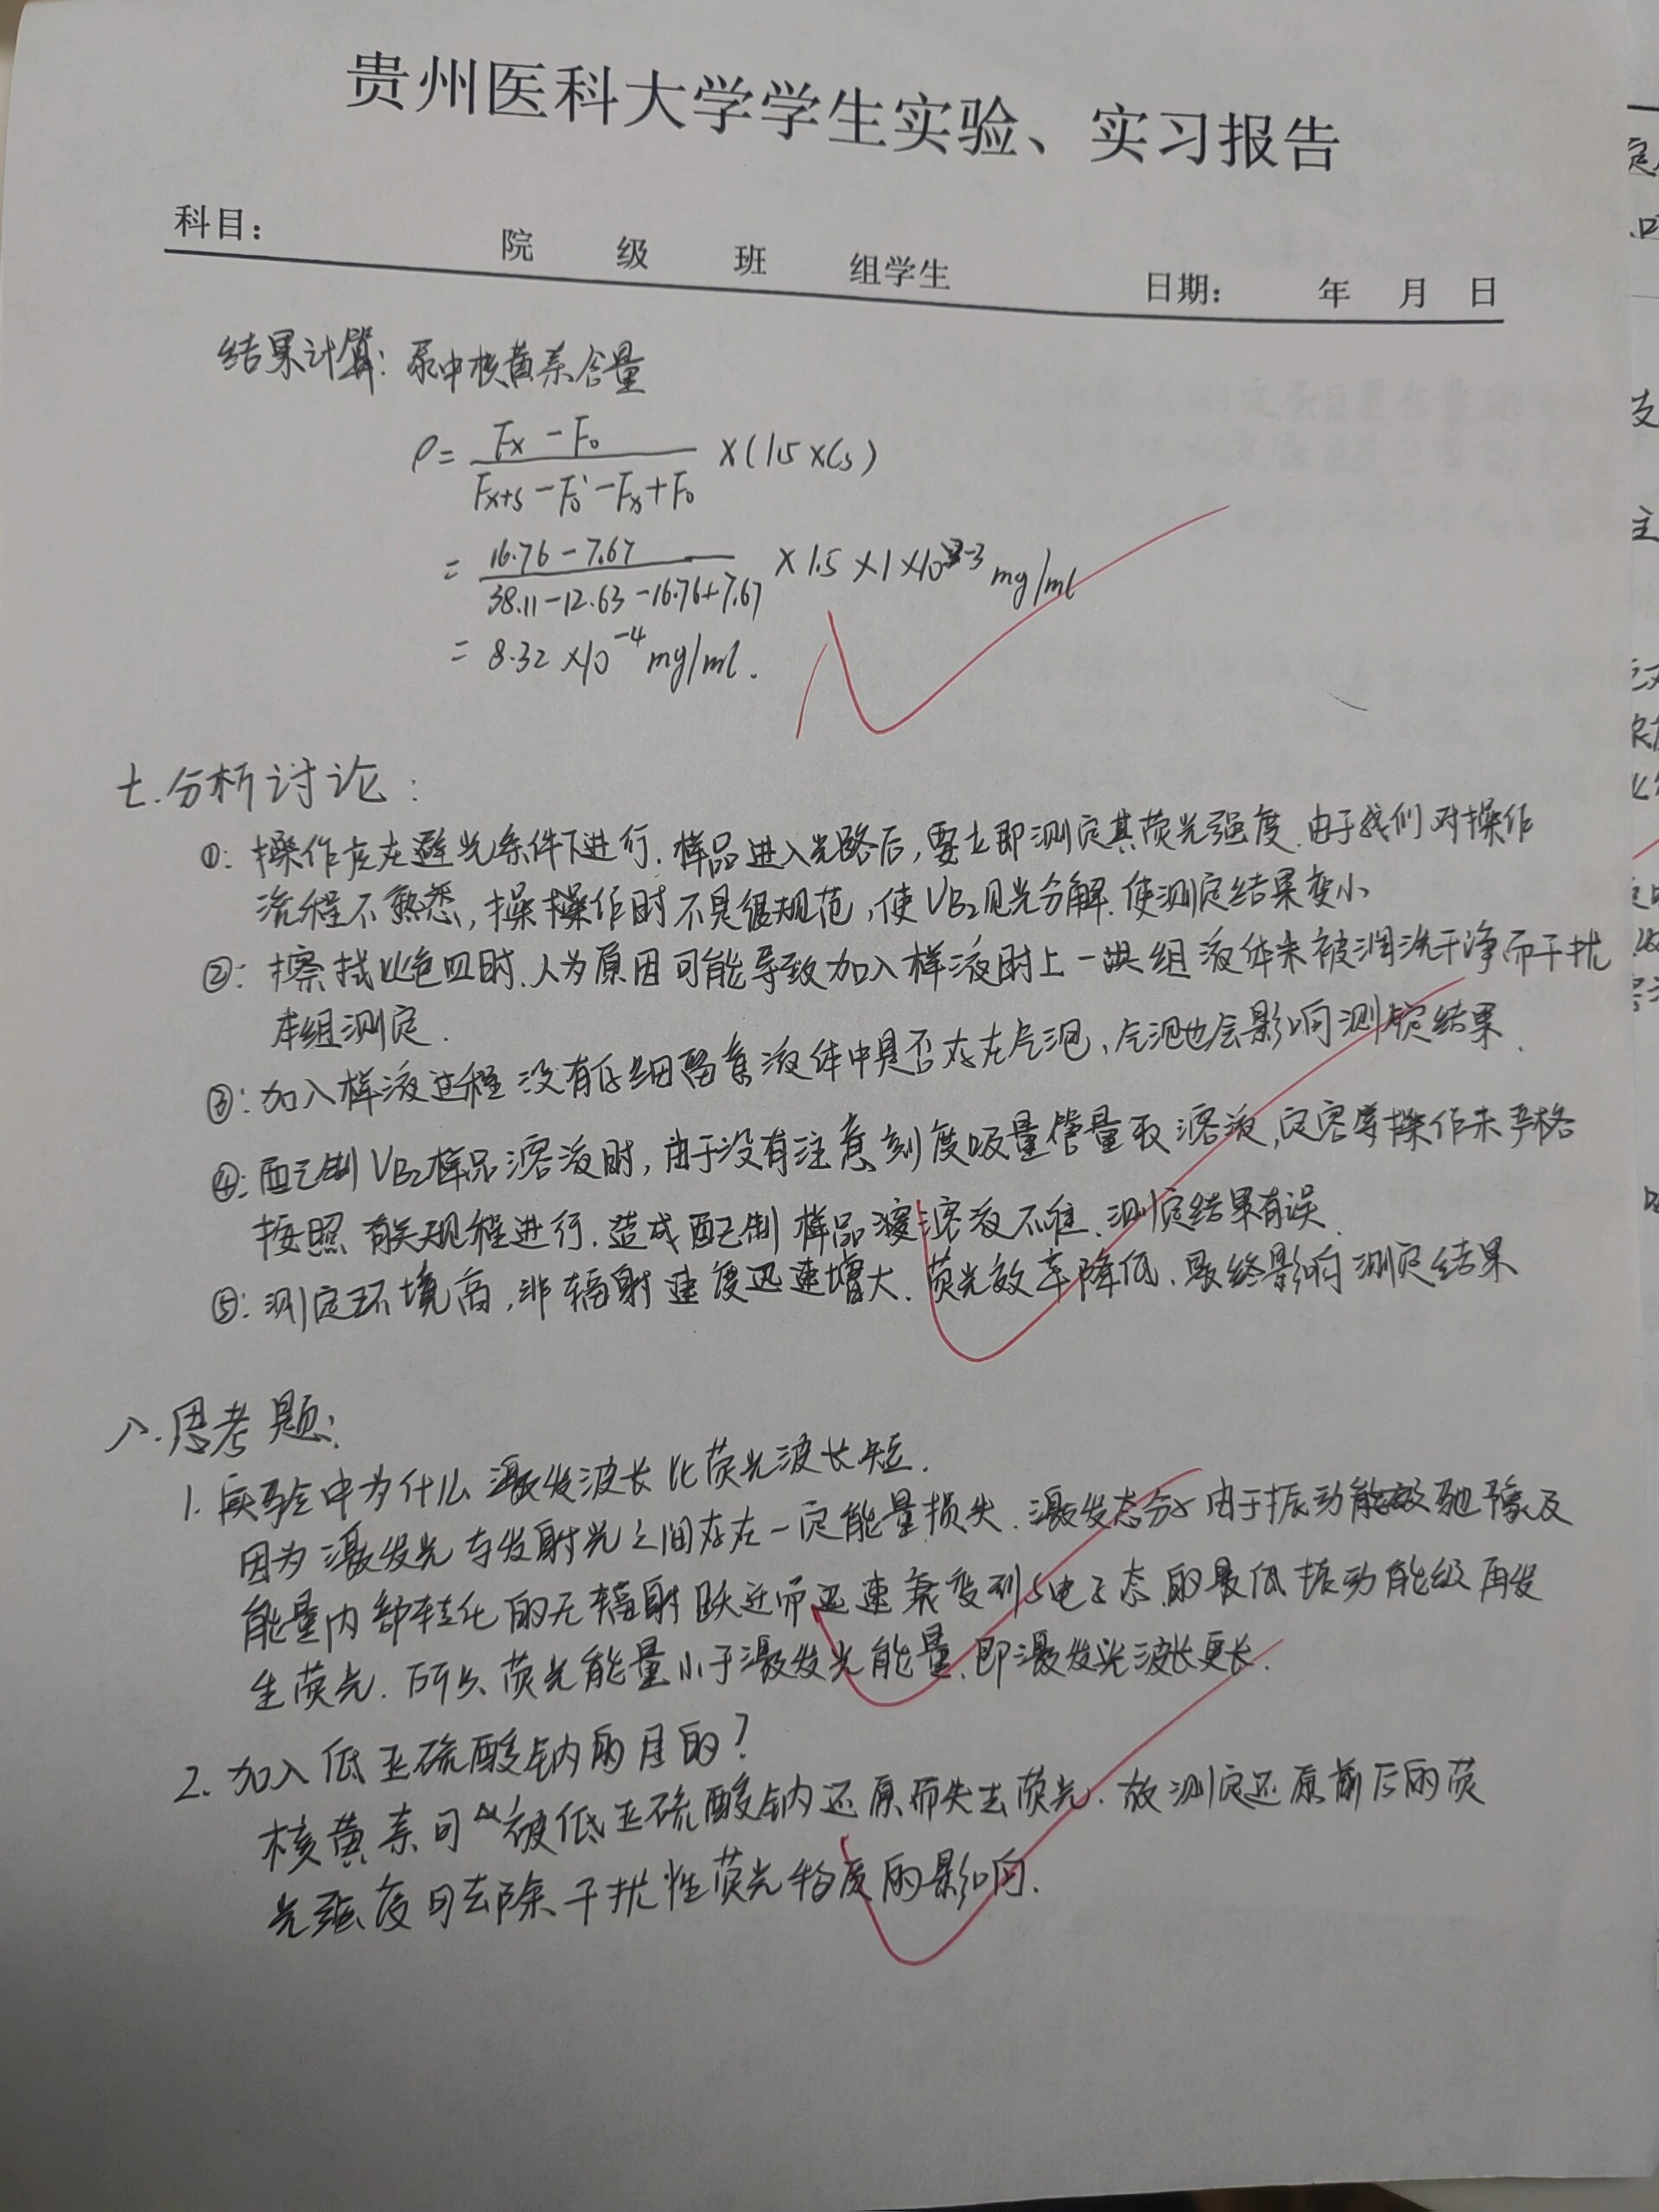 贵州医科大学学生实验、实习报告
科目: 院 级 班 组学生 日期: 年 月 日
结果计算: 尿中核黄素含量
ρ= (Fx - F0)/(Fx+s - F0' - Fx + F0) ×(1.5×Cs)
= (16.76-7.67)/(38.11-12.63-16.76+7.67) ×1.5×1×10⁻³ mg/ml
= 8.32×10⁻⁴ mg/ml.
七.分析讨论:
①: 操作应在避光条件下进行. 样品进入光路后, 要立即测定其荧光强度. 由于我们对操作
流程不熟悉, 操操作时不是很规范, 使VB₂见光分解. 使测定结果变小
②: 擦拭比色皿时. 人为原因可能导致加入样液时上一组液体未被润洗干净而干扰
本组测定.
③: 加入样液过程没有仔细留意液体中是否存在气泡、气泡也会影响测定结果.
④: 配制VB₂样品溶液时, 由于没有注意刻度吸量管量取溶液, 定容等操作未严格
按照有关规程进行. 造成配制样品溶液不准、测定结果有误.
⑤: 测定环境高, 非辐射速度迅速增大. 荧光效率降低、最终影响测定结果
八.思考题:
1. 实验中为什么激发波长比荧光波长短.
因为激发光与发射光之间存在一定能量损失. 激发态分子由于振动能级弛豫及
能量内部转化的无辐射跃迁而迅速衰变到S电子态的最低振动能级再发
生荧光. 所以荧光能量小于激发光能量、即激发光波长更长.
2. 加入低亚硫酸钠的目的?
核黄素可被低亚硫酸钠还原而失去荧光. 故测定还原前后的荧
光强度可去除干扰性荧光物质的影响.